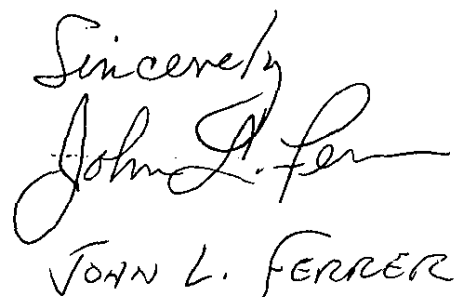 Sincerely
John L. Fer
JOHN L. FERRER